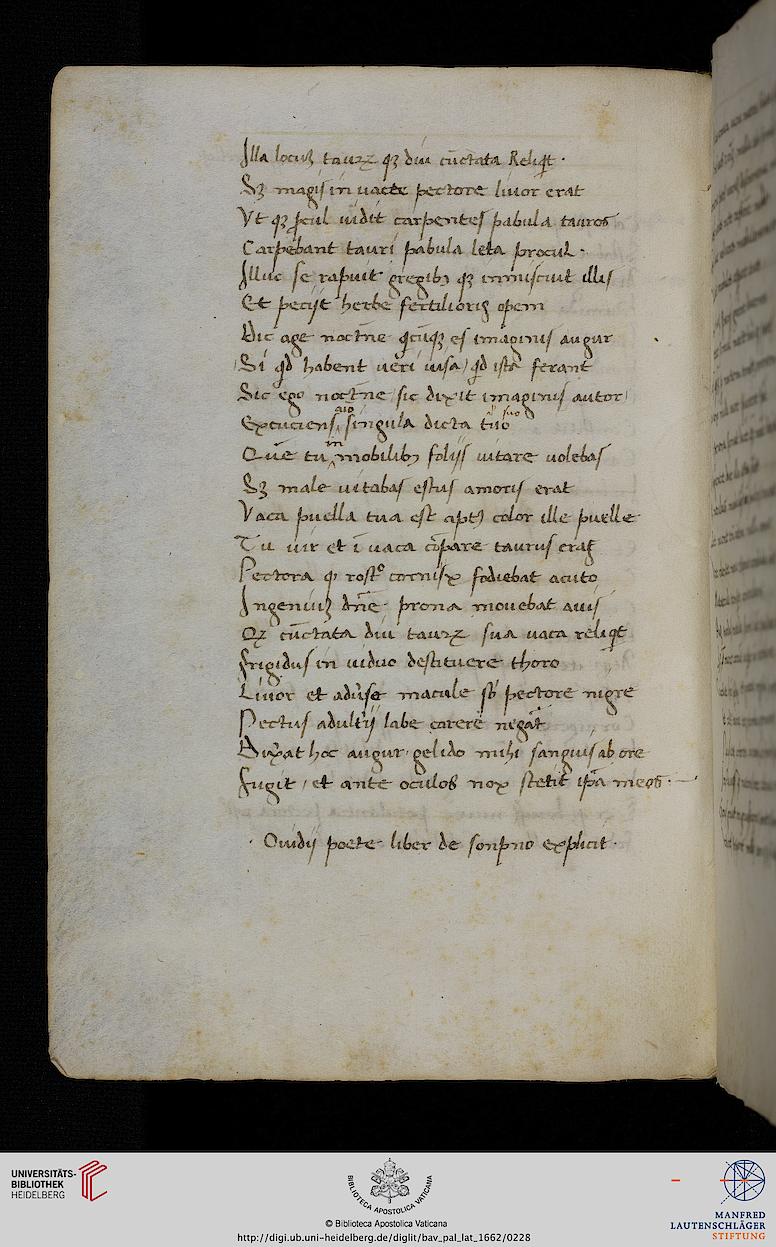 Illa locuꝫ tauꝝ qꝫ diu cūctata Reliqͥt ·
Sꝫ magis in uacce pectore liuor erat
Vt qꝫ ꝓcul uidit carpentes pabula tauros
Carpebant tauri pabula leta procul ·
Illuc se rapuit gregibꝫ qꝫ inmiscuit illis
Et peciit herbe fertilioris opem
Dic age noctꝰne qͥcūqꝫ es imaginis augur
Si qͥd habent ueri uisa / qͥd ista ferant
Sic ego noctꝰne / sic dixit imaginis autor
Excuciens aīo singula dicta suo
Quē tu in mobilibꝫ foliis uitare uolebas
Sꝫ male uitabas estus amoris erat
Vaca puella tua est aptꝰ color ille puelle
Tu uir et ī uaca cōpare taurus eras
Pectora qͣ rostͦ cornix fodiebat acuto
Ingeniuꝫ dn̄e · prona mouebat auis
Qꝫ cūctata diu tauꝝ sua uaca reliqͥt
Frigidus in uiduo destituere thoro
Liuor et aduꝰse macule sb̄ pectore nigre
Pectus adulterii labe carere negāt
Dixͣat hoc augur · gelido mihi sanguis ab ore
Fugit / et ante oculos nox stetit ip̄a meos · —
· Ouidii poete liber de sonpno explicit ·
UNIVERSITÄTS-
BIBLIOTHEK
HEIDELBERG
BIBLIOTECA APOSTOLICA VATICANA
© Biblioteca Apostolica Vaticana
http://digi.ub.uni-heidelberg.de/diglit/bav_pal_lat_1662/0228
MANFRED
LAUTENSCHLÄGER
STIFTUNG